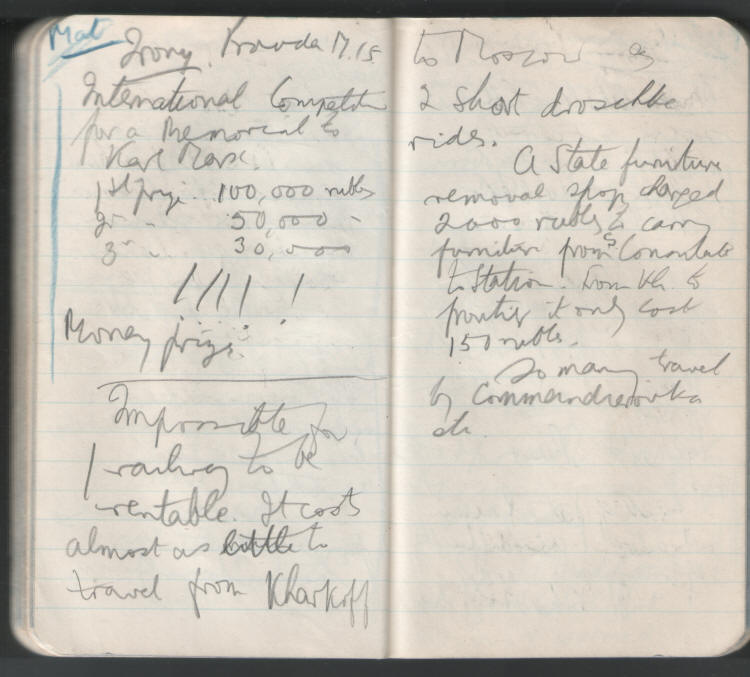 Mat
Irony. Pravda M. 15
International Competition
for a Memorial to
Karl Marx.
1st prize. 100,000 rubles
2 - - 50,000 -
3 - - 30,000
! ! ! ! !
Money prize.
Impossible for
railway to be
rentable. It costs
almost as little to
travel from Kharkoff
to Moscow as
2 short droschke
rides.
A State furniture
removal shop charged
2000 rubles to carry
furniture from G Consulate
to Station. From Kh. to
frontier it only cost
150 rubles.
So many travel
by Commandirovka
etc.